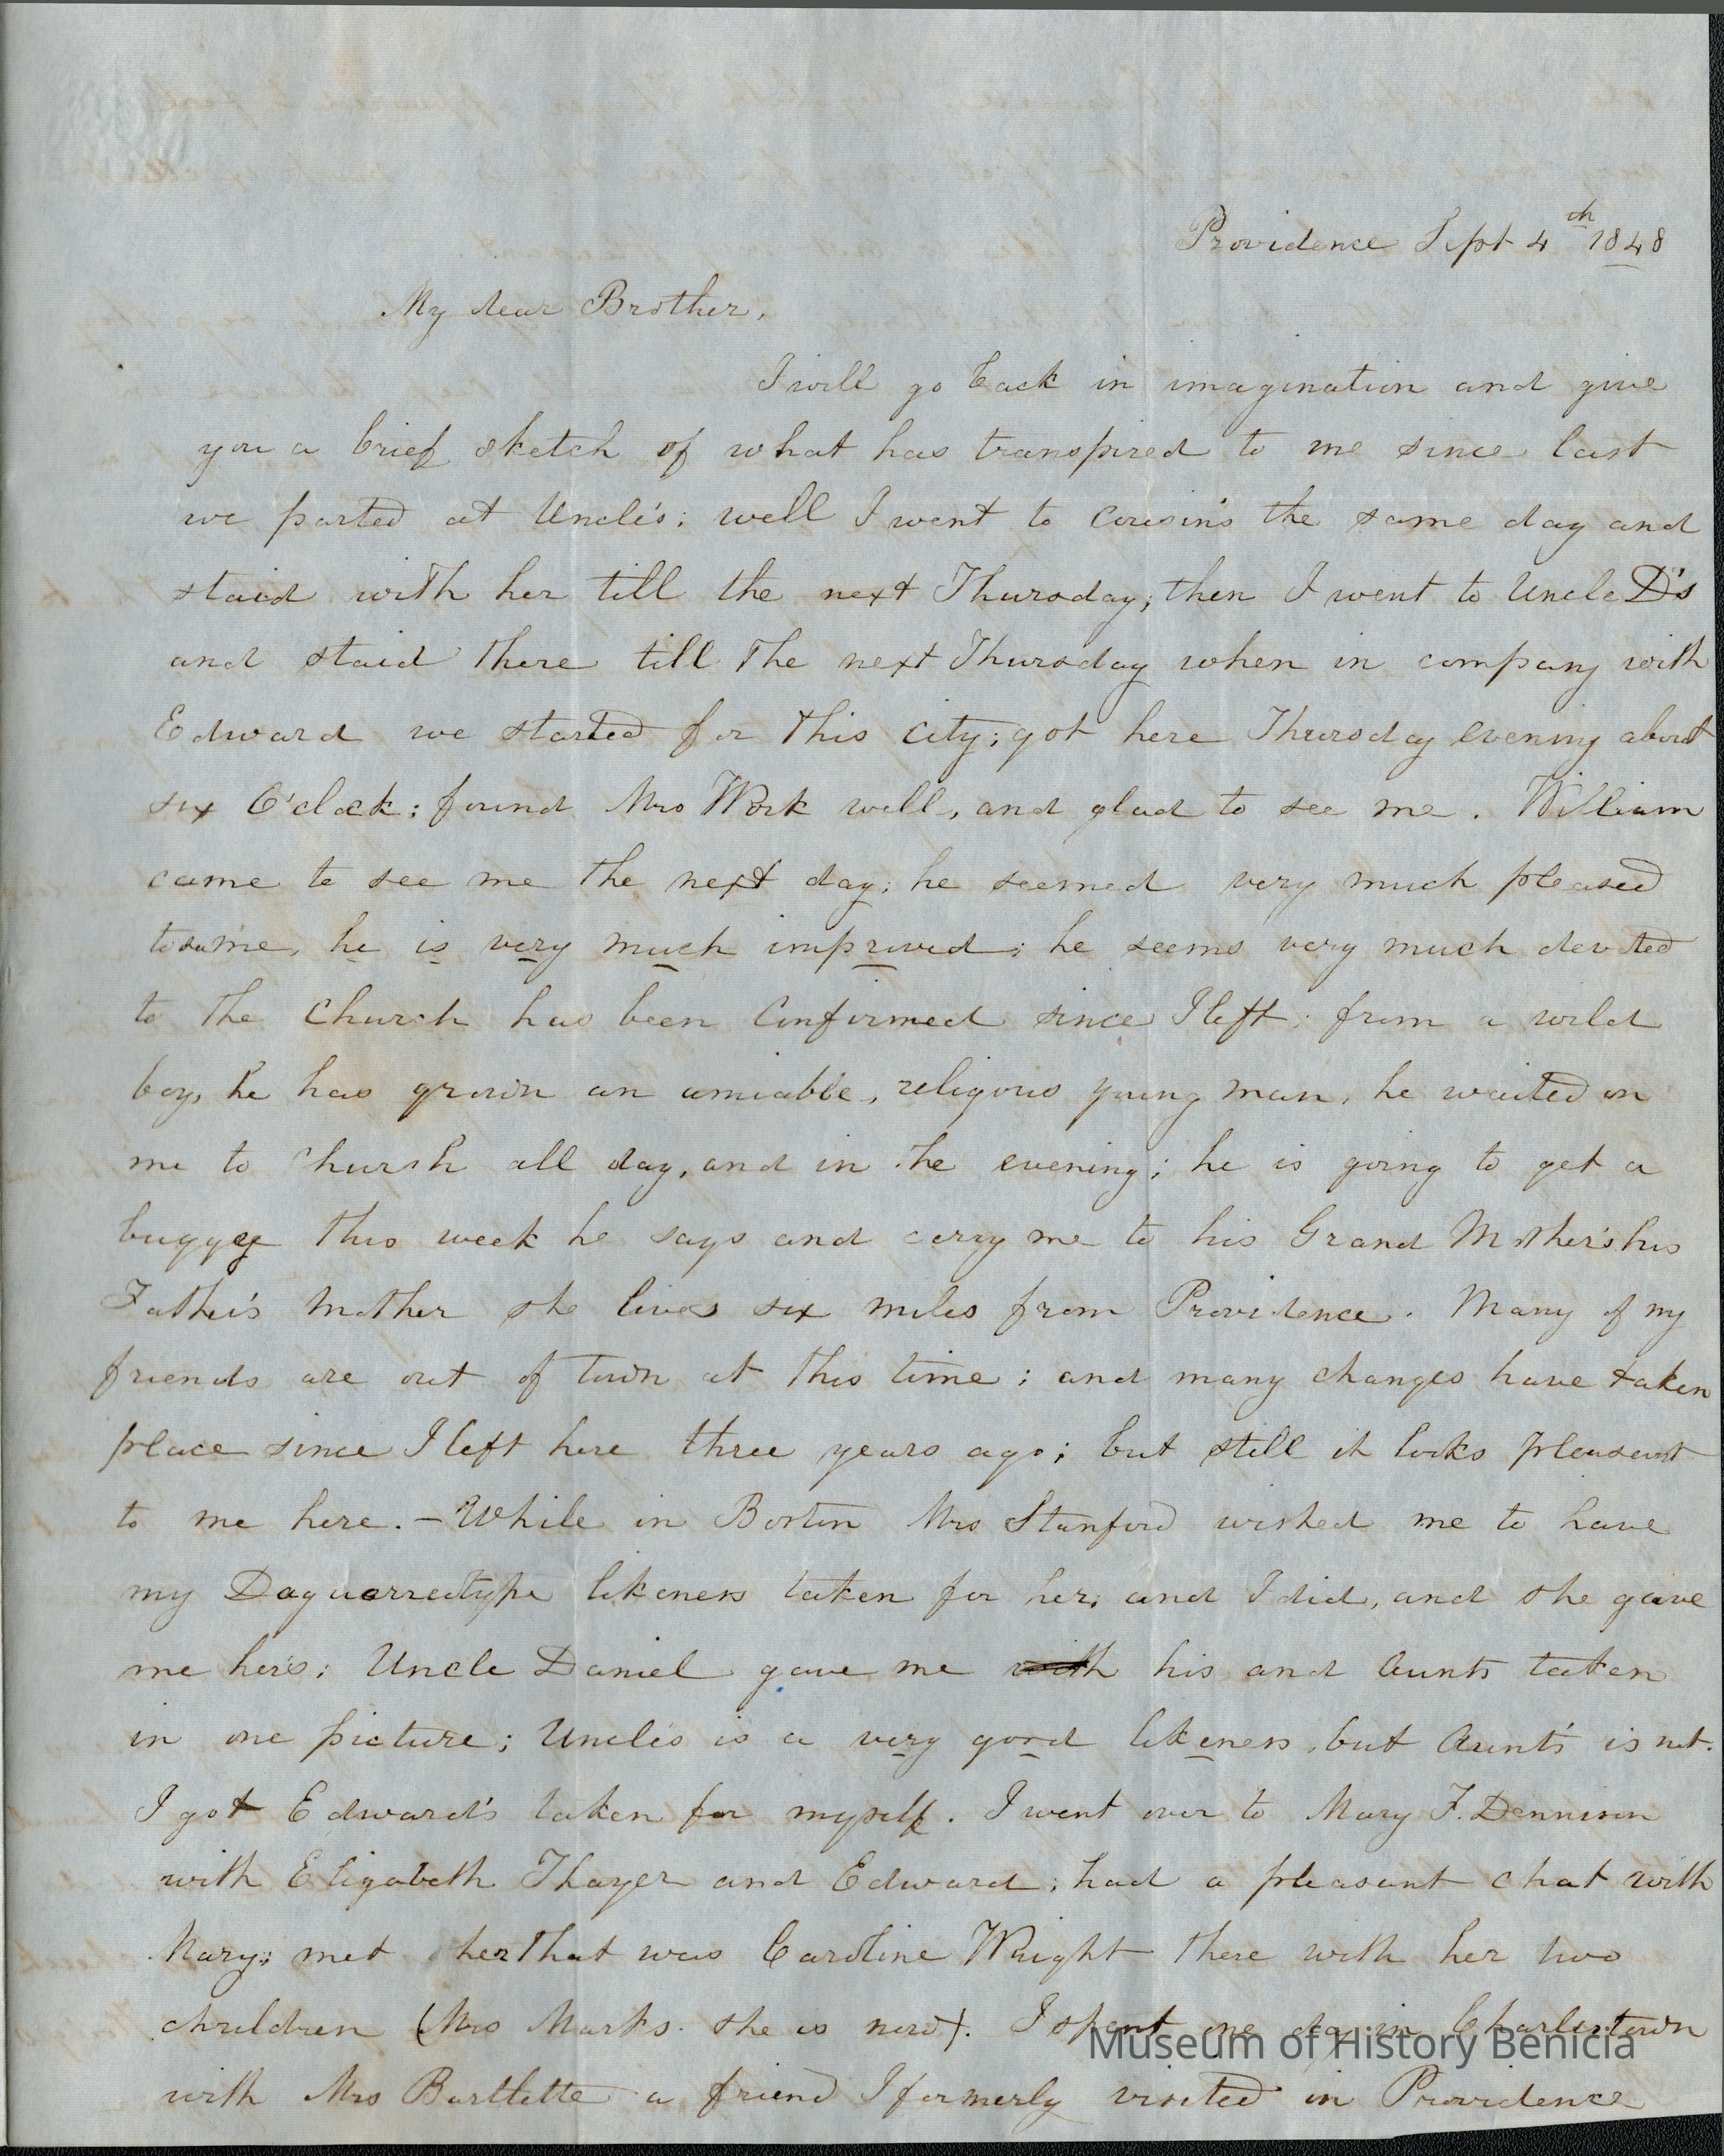 Providence Sept 4th 1848
My dear Brother,
I will go back in imagination and give
you a brief sketch of what has transpired to me since last
we parted at Uncle's; well I went to cousin's the same day and
staid with her till the next Thursday; then I went to Uncle D's
and staid there till the next Thursday when in company with
Edward we started for this city; got here Thursday evening about
six O'clock; found Mrs Work well, and glad to see me. William
came to see me the next day; he seemed very much pleased
to see me, he is very much improved; he seems very much devoted
to the church has been confirmed since I left; from a wild
boy, he has grown an amiable, religious young man, he waited on
me to church all day, and in the evening; he is going to get a
buggy this week he says and carry me to his Grand Mother's his
Father's mother she lives six miles from Providence. Many of my
friends are out of town at this time; and many changes have taken
place since I left here three years ago; but still it looks pleasant
to me here. - While in Boston Mrs Stanford wished me to have
my Daguarreotype likeness taken for her; and I did, and she gave
me hers; Uncle Daniel gave me with his and Aunts taken
in one picture; Uncle's is a very good likeness, but Aunt's is not.
I got Edward's taken for myself. I went over to Mary F. Dennison
with Elizabeth Thayer and Edward; had a pleasant chat with
Mary; met her that was Caroline Wright there with her two
children (Mrs Marks she is now). I spent one day in Charlestown
with Mrs Bartlette a friend I formerly visited in Providence
Museum of History Benicia